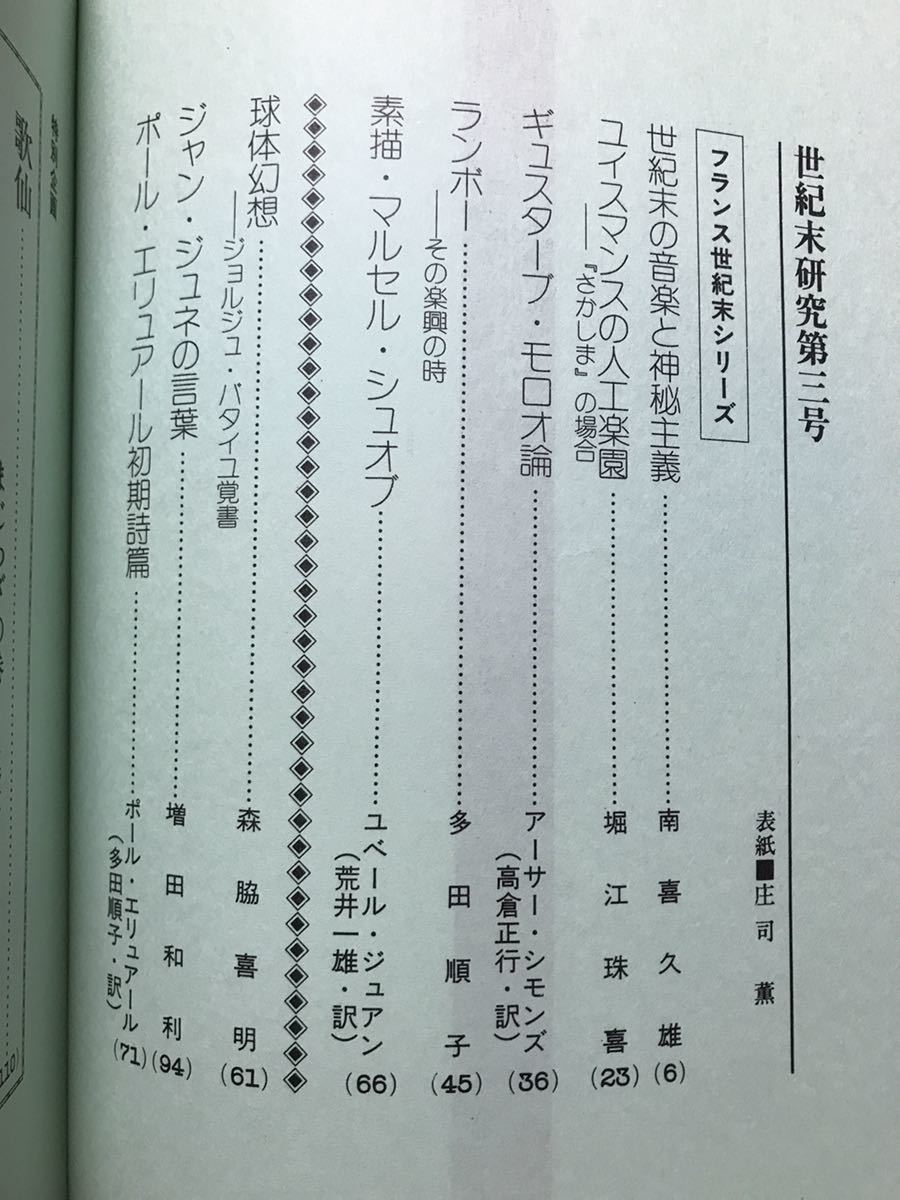 世紀末研究第三号
表紙■庄司薫
フランス世紀末シリーズ
世紀末の音楽と神秘主義……………南喜久雄(6)
ユイスマンスの人工楽園
――『さかしま』の場合……………堀江珠喜(23)
ギュスターブ・モロオ論……………アーサー・シモンズ
(高倉正行・訳)(36)
ランボー
――その楽興の時……………多田順子(45)
素描・マルセル・シュオブ……………ユベール・ジュアン
(荒井一雄・訳)(66)
球体幻想……………森脇喜明(61)
――ジョルジュ・バタイユ覚書
ジャン・ジュネの言葉……………増田和利(94)
ポール・エリュアール初期詩篇……………ポール・エリュアール
(多田順子・訳)(71)
特別企画
歌仙……………
110)